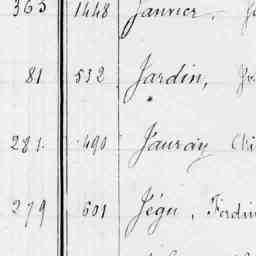 363 1448 Janvier,
81 532 Jardin,
281. 490 Jauray
279 601 Jégu, Ferdin